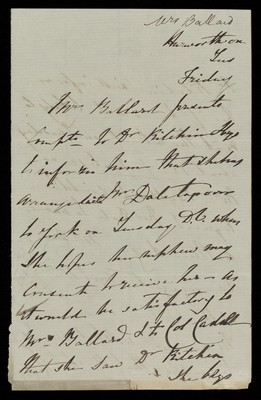 Mrs Ballard
Hurworth on
Tees
Friday
Mrs Ballard presents
compts to Dr Kitchin & begs
to inform him that she has
arranged with Mrs Dale to go over
to York on Tuesday D.V. when
she hopes her nephew may
consent to receive her - as
it would be satisfactory to
Mrs Ballard & to Col Cadell
that she saw Dr Kitchin
She begs